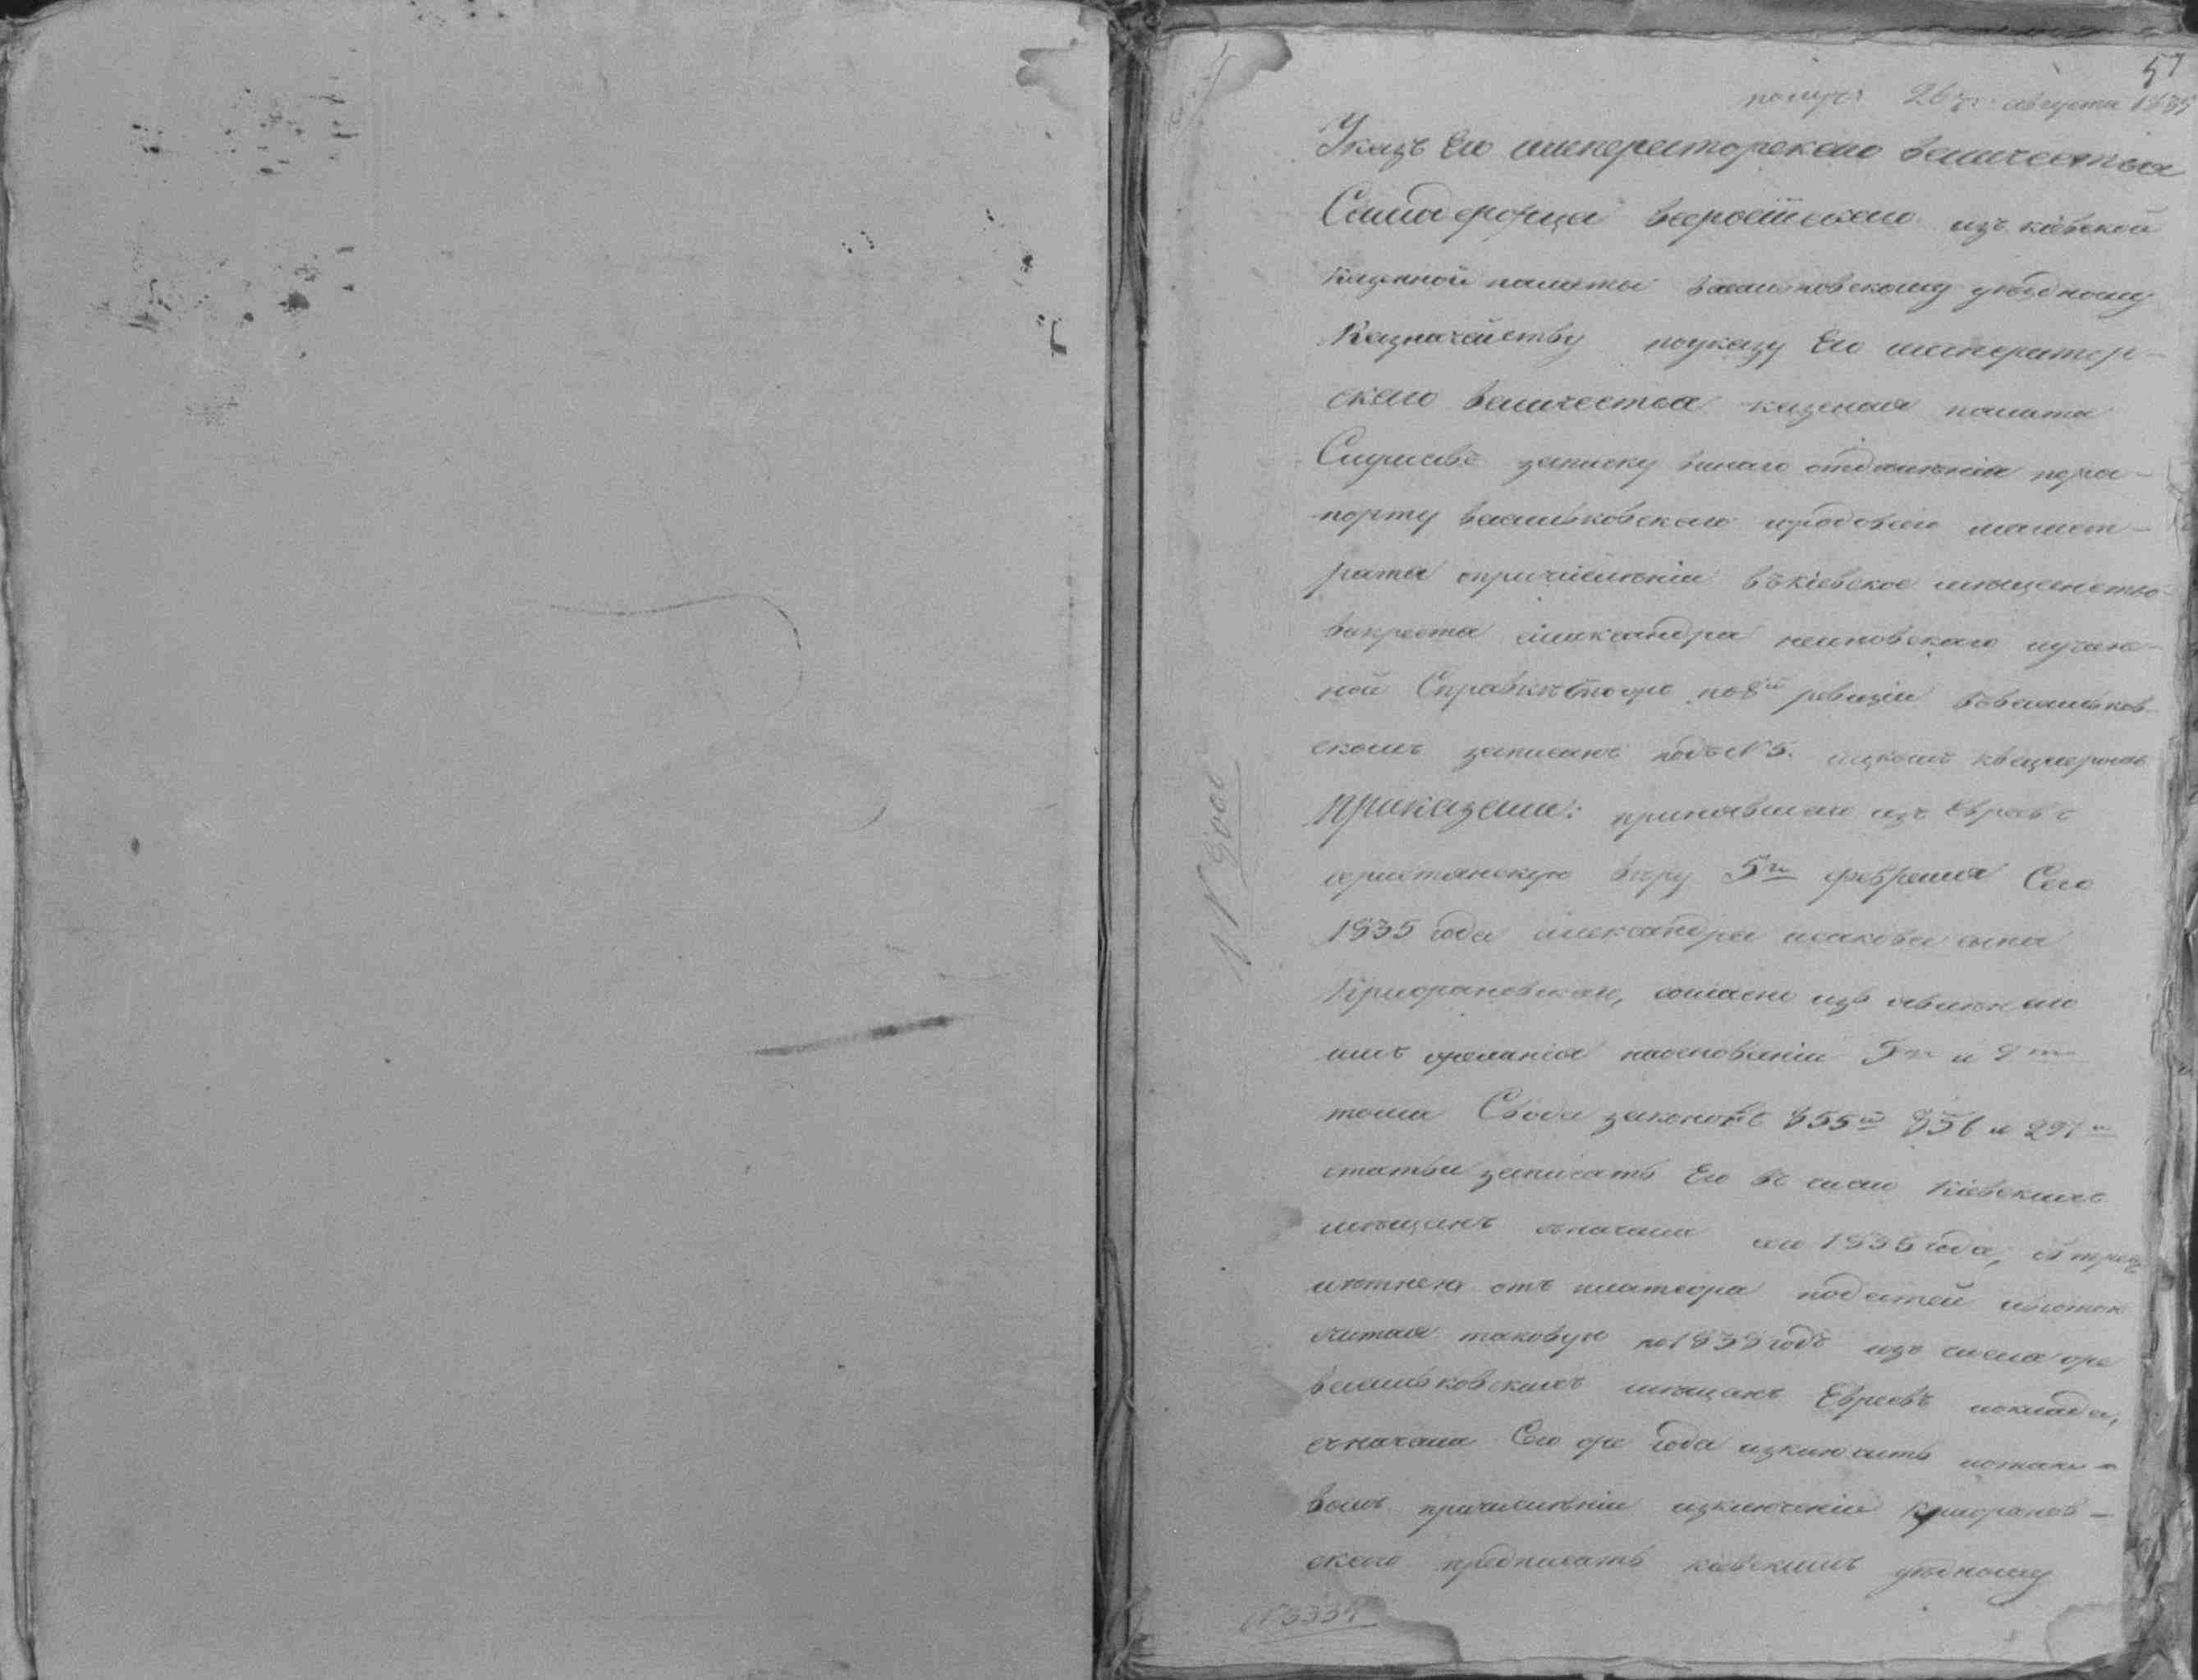 57
получ: 26го августа 1835
Указъ Его императорскаго величества
Самодержца всероссійскаго изъ кіевской
казенной палаты васильковскому уѣздному
Казначейству поуказу Его император-
скаго величества казеная палата
Слушавъ записку отдѣленія пора-
порту васильковскаго городоваго магист-
рата опричисленіи въкіевское мѣщанство
викреста александра
ной поуже по8й ревизіи въвасильков-
скомъ записанъ подъ №5.
Приказали: принявшаго изъ Евреевъ
христіянскую вѣру 5го февраля Сего
1835 года александра исакова сына
согласно изъявленнаго
имъ желанія наоснованіи 5го и 9го
тома Свода законовъ 855й 856 и 297й
статьи записать Его въ число Кіевскихъ
мѣщанъ сначала сего 1835 года, съ трех
лѣтнею отъ платежа податей льготою
считая таковую по1838 годъ изъ числа же
васильковскихъ мѣщанъ Евреевъ и оклада,
съначала Сего же года изключить и отако-
вомъ причисленіи изключеніи
скаго предписать кіевскимъ уѣдному
№3334